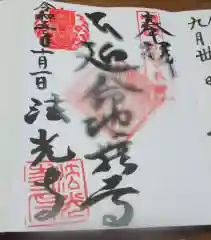 九月卅日
奉拝
延命地蔵尊
法光寺
令和 年十月一日